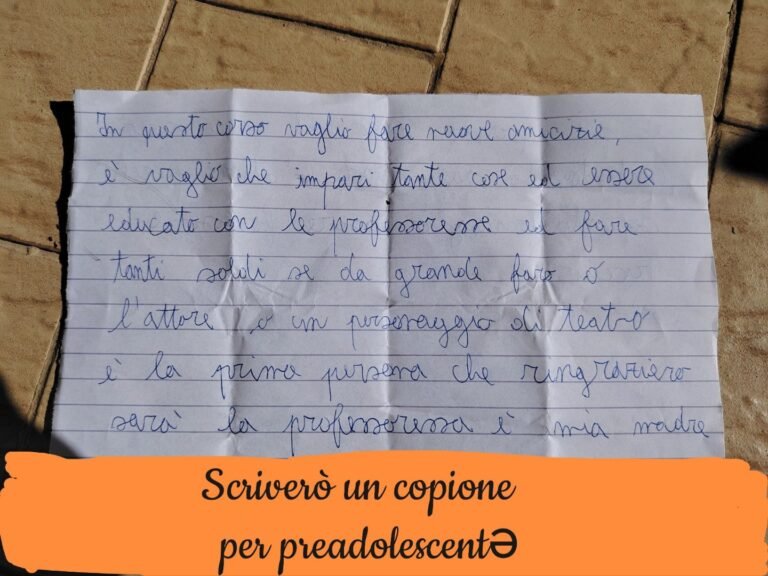 In questo corso vaglio fare nuove amicizie,
è vaglio che impari tante cose ed essere
educato con le professoresse ed fare
tanti soldi se da grande faro o
l'attore o un personaggio di teatro
è la prima persona che ringraziero
sarà la professoressa è mia madre
Scriverò un copione
per preadolescentƏ